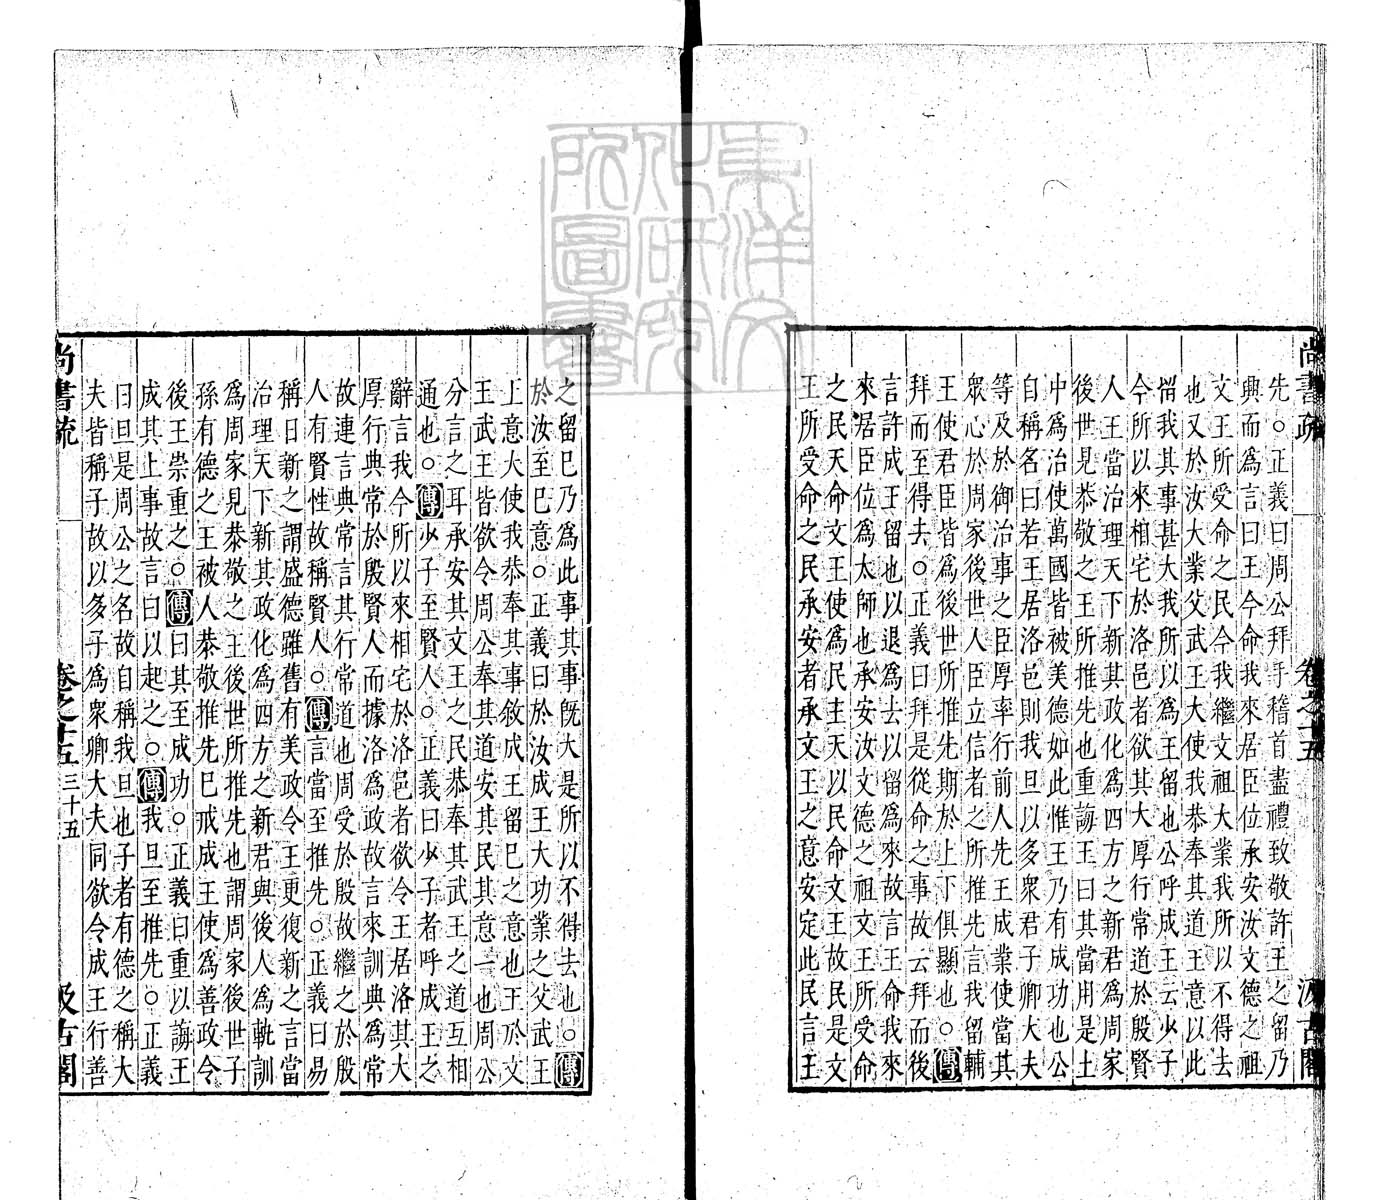 尚書疏 卷之十五 汲古閣
先○正義曰周公拜手稽首盡禮致敬許王之留乃
興而為言曰王今命我來居臣位承安汝文德之祖
文王所受命之民今我繼文祖大業我所以不得去
也又於汝大業父武王大使我恭奉其道王意以此
留我其事甚大我所以為王留也公呼成王云少子
今所以來相宅於洛邑者欲其大厚行常道於殷賢
人王當治理天下新其政化為四方之新君為周家
後世見恭敬之王所推先也重誨王曰其當用是土
中為治使萬國皆被美德如此惟王乃有成功也公
自稱名曰若王居洛邑則我旦以多衆君子卿大夫
等及於御治事之臣厚率行前人先王成業使當其
衆心於周家後世人臣立信者之所推先言我留輔
王使君臣皆為後世所推先期於上下俱顯也○傳
拜而至得去○正義曰拜是從命之事故云拜而後
言許成王留也以退為去以留為來故言王命我來
來居臣位為太師也承安汝文德之祖文王所受命
之民天命文王使為民主天以民命文王故民是文
王所受命之民承安者承文王之意安定此民言王
之留巳乃為此事其事既大是所以不得去也○傳
於汝至巳意○正義曰於汝成王大功業之父武王
上意大使我恭奉其事敘成王留巳之意也王於文
王武王皆欲令周公奉其道安其民其意一也周公
分言之耳承安其文王之民恭奉其武王之道互相
通也○傳少子至賢人○正義曰少子者呼成王之
辭言我今所以來相宅於洛邑者欲令王居洛其大
厚行典常於殷賢人而據洛為政故言來訓典為常
故連言典常言其行常道也周受於殷故繼之於殷
人有賢性故稱賢人○傳言當至推先○正義曰易
稱日新之謂盛德雖舊有美政令王更復新之言當
治理天下新其政化為四方之新君與後人為軌訓
為周家見恭敬之王後世所推先也謂周家後世子
孫有德之王被人恭敬推先巳戒成王使為善政令
後王崇重之○傳曰其至成功○正義曰重以誨王
成其上事故言曰以起之○傳我旦至推先○正義
曰旦是周公之名故自稱我旦也子者有德之稱大
夫皆稱子故以多子為衆卿大夫同欲令成王行善
尚書疏 卷之十五 三十五 汲古閣
東洋文化研究所圖書